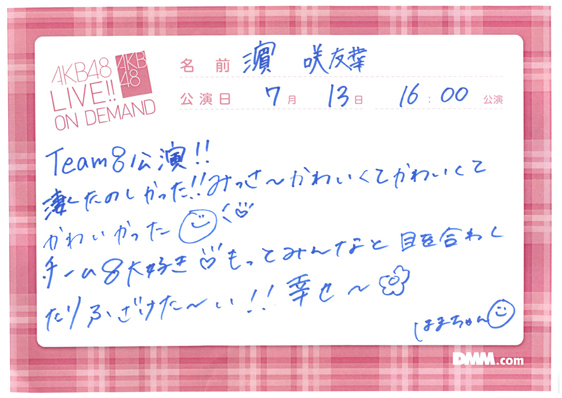 AKB48
LIVE!!
ON DEMAND
AKB
48
名前 濵 咲友菜
公演日 7月 13日 16:00 公演
Team8公演!!
凄くたのしかった!!みっさ〜かわいくてかわいくて
かわいかった
チーム8大好き もってみんなと目を合わし
たりふざけた〜い!!幸せ〜
はまちゃん
DMM.com